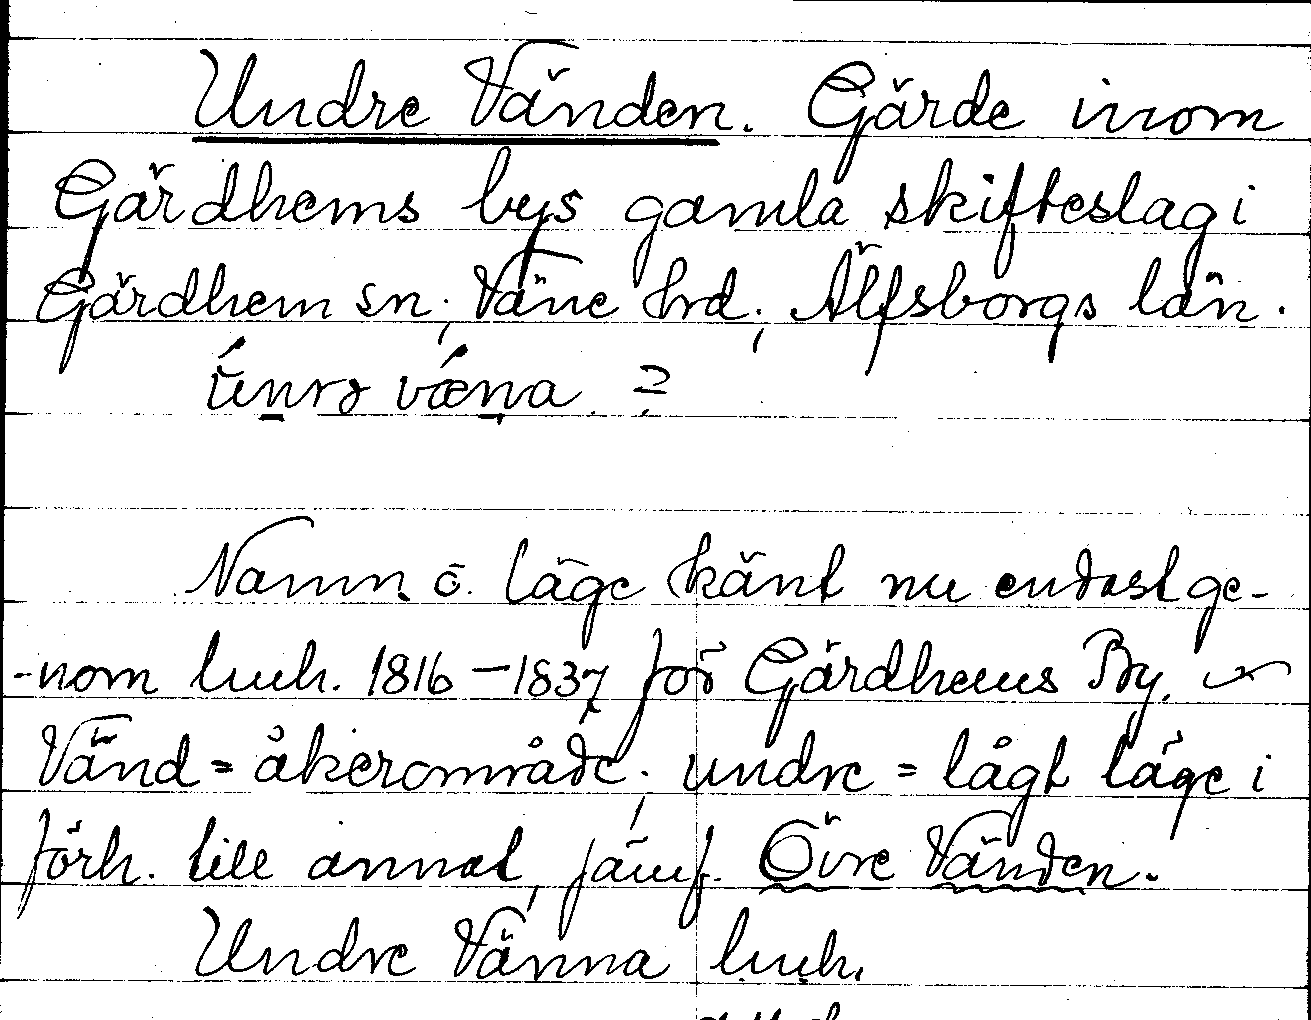 Undre Vänden. Gärde inom
Gärdhems bys gamla skifteslag i
Gärdhem sn; Väne hrd; Älfsborgs län.
Namn o. läge känt nu endast ge-
-nom lmh. 1816–1837 för Gärdhems By.
Vänd = åkerområde; undre = lågt läge i
förh. till annat, jämf. Övre Vänden.
Undre Vänna lmh.